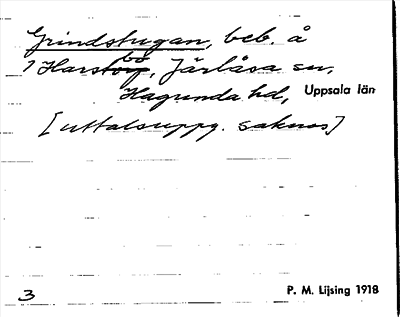 Grindstugan, beb. å
1 Harsbo, Järlåsa sn,
Hagunda hd, Uppsala län
[uttalsuppg. saknas]
3
P. M. Lijsing 1918